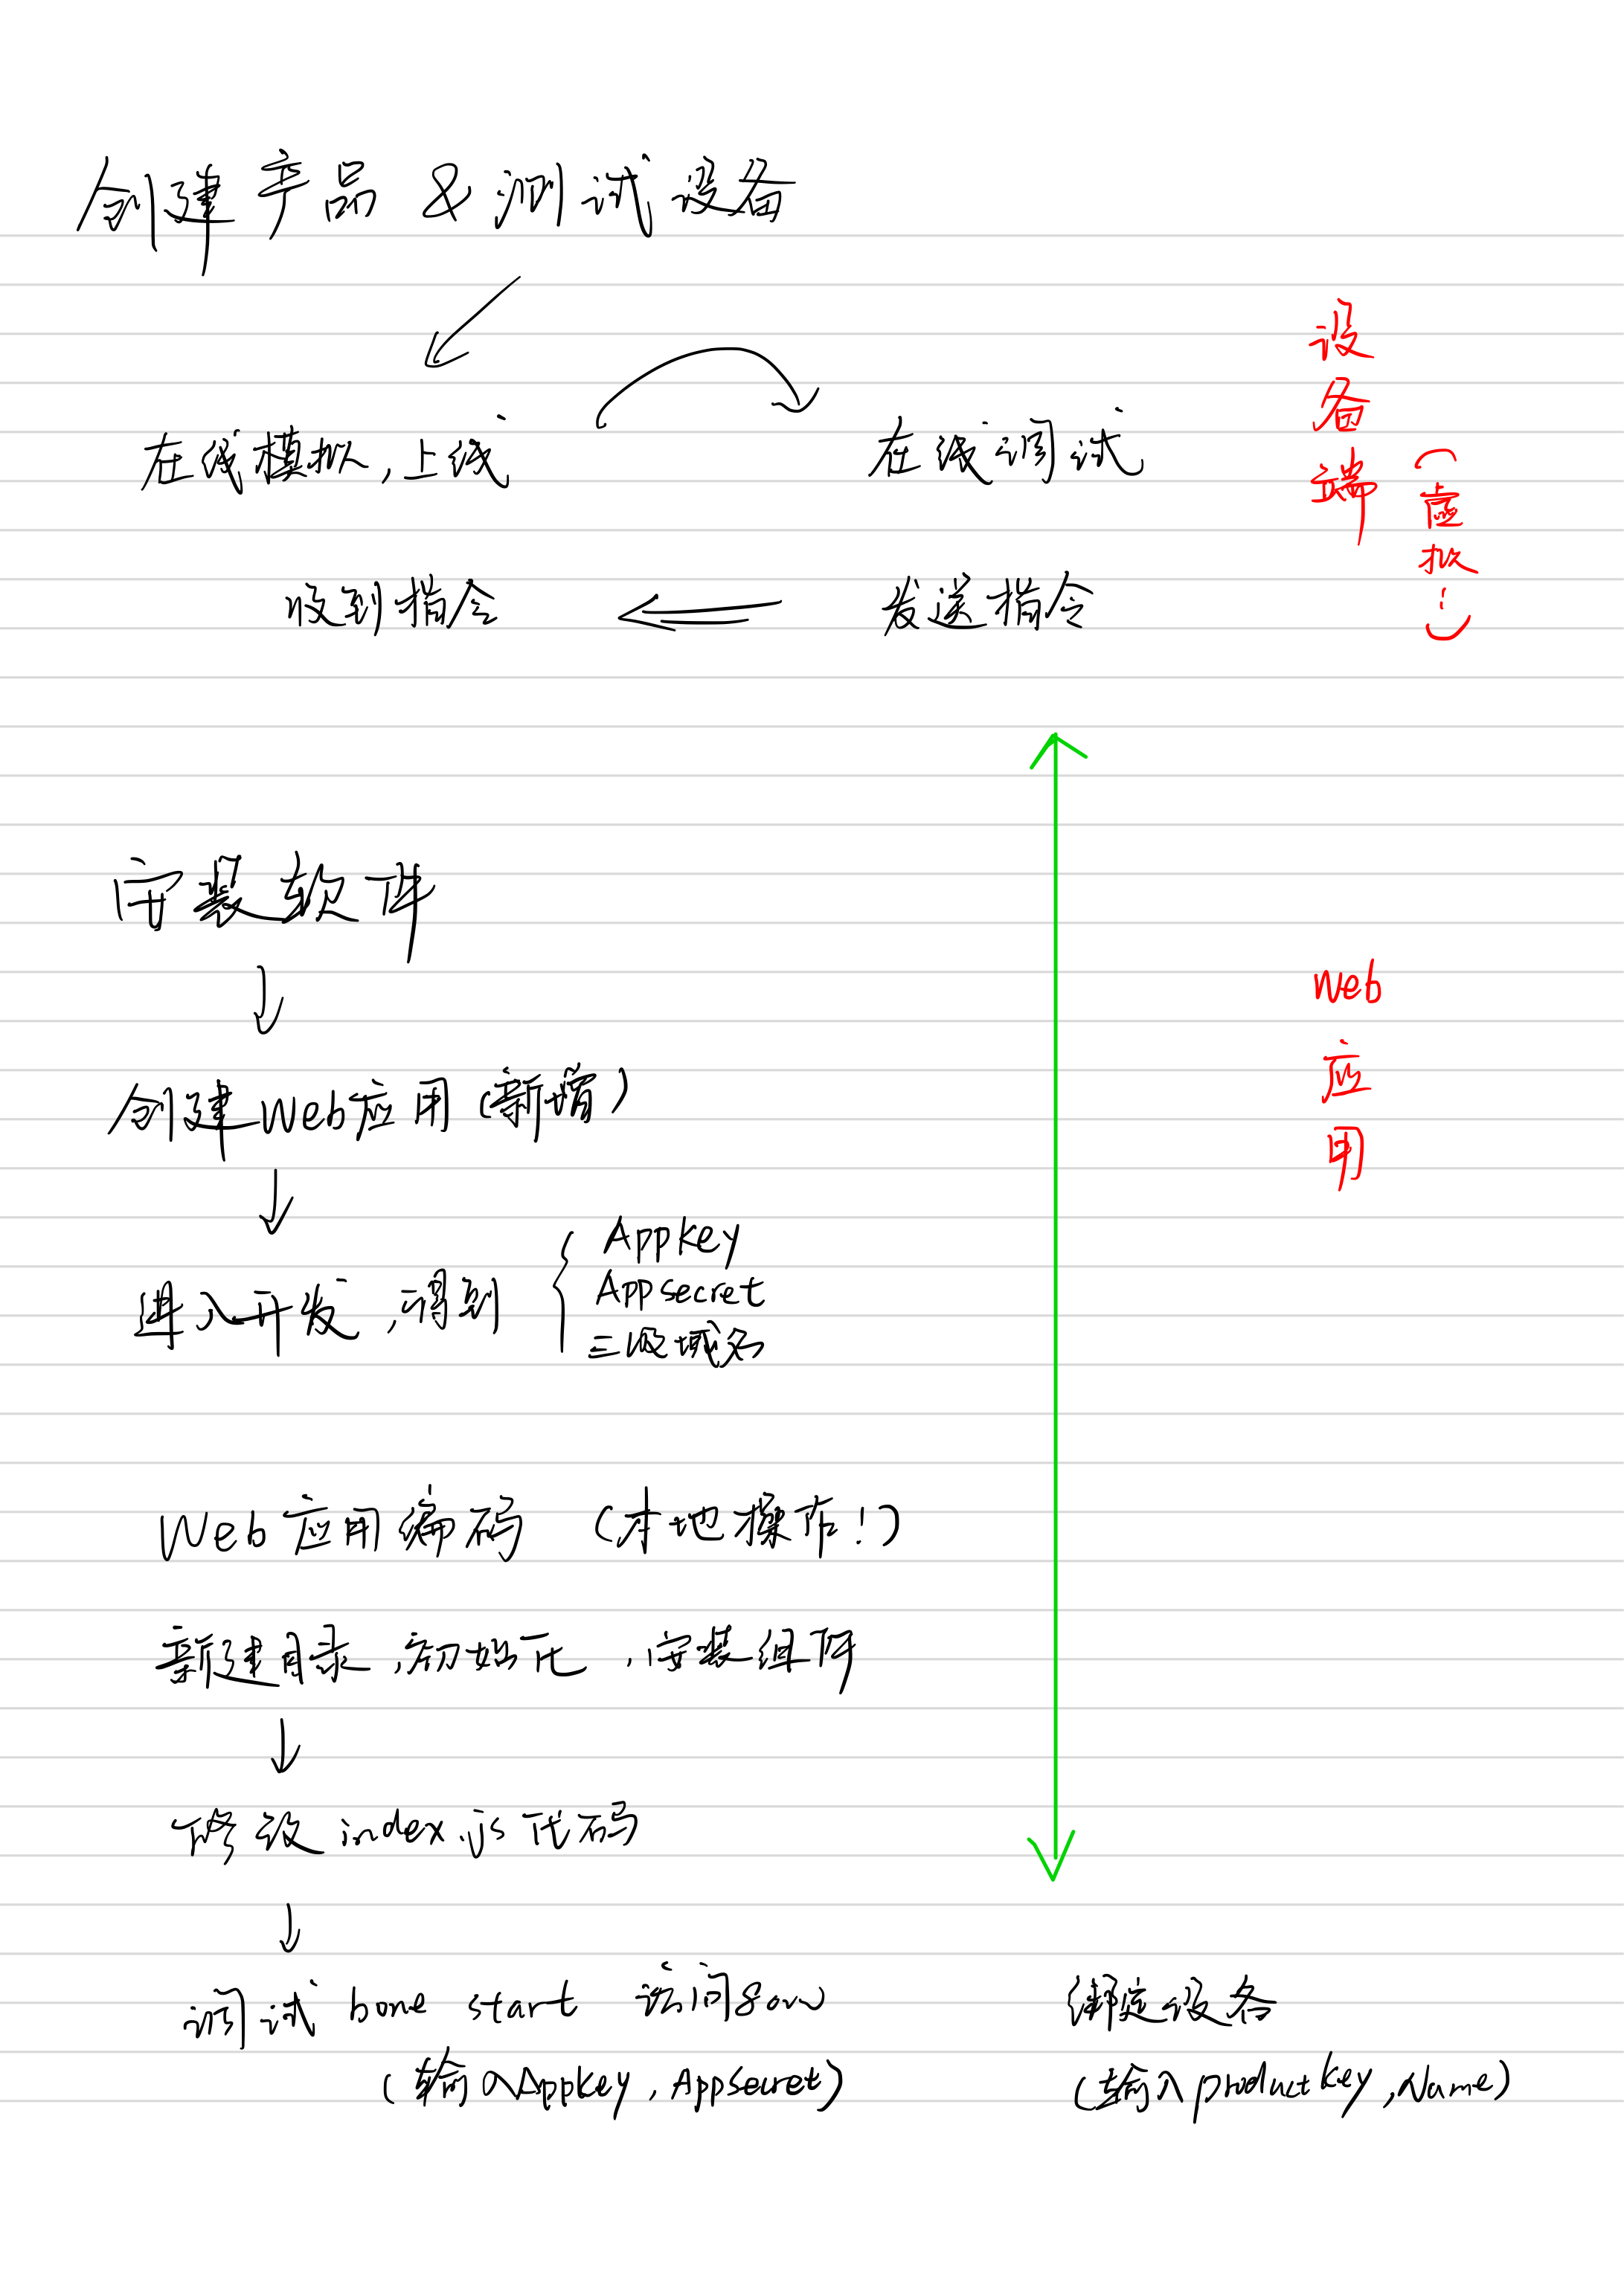 创建产品 & 测试设备
在线模拟,上线
在线调试
收到指令
发送指令
设备端
(虚拟!)
安装软件
创建Web应用(新增)
进入开发,得到
AppKey
Appsecret
三级域名
Web应用
Web应用编码 (本地操作!)
新建目录,初始化,安装组件
修改index.js代码
调试 bone start 访问
(输入AppKey, AppSecret)
绑定设备
(输入productkey,Name)